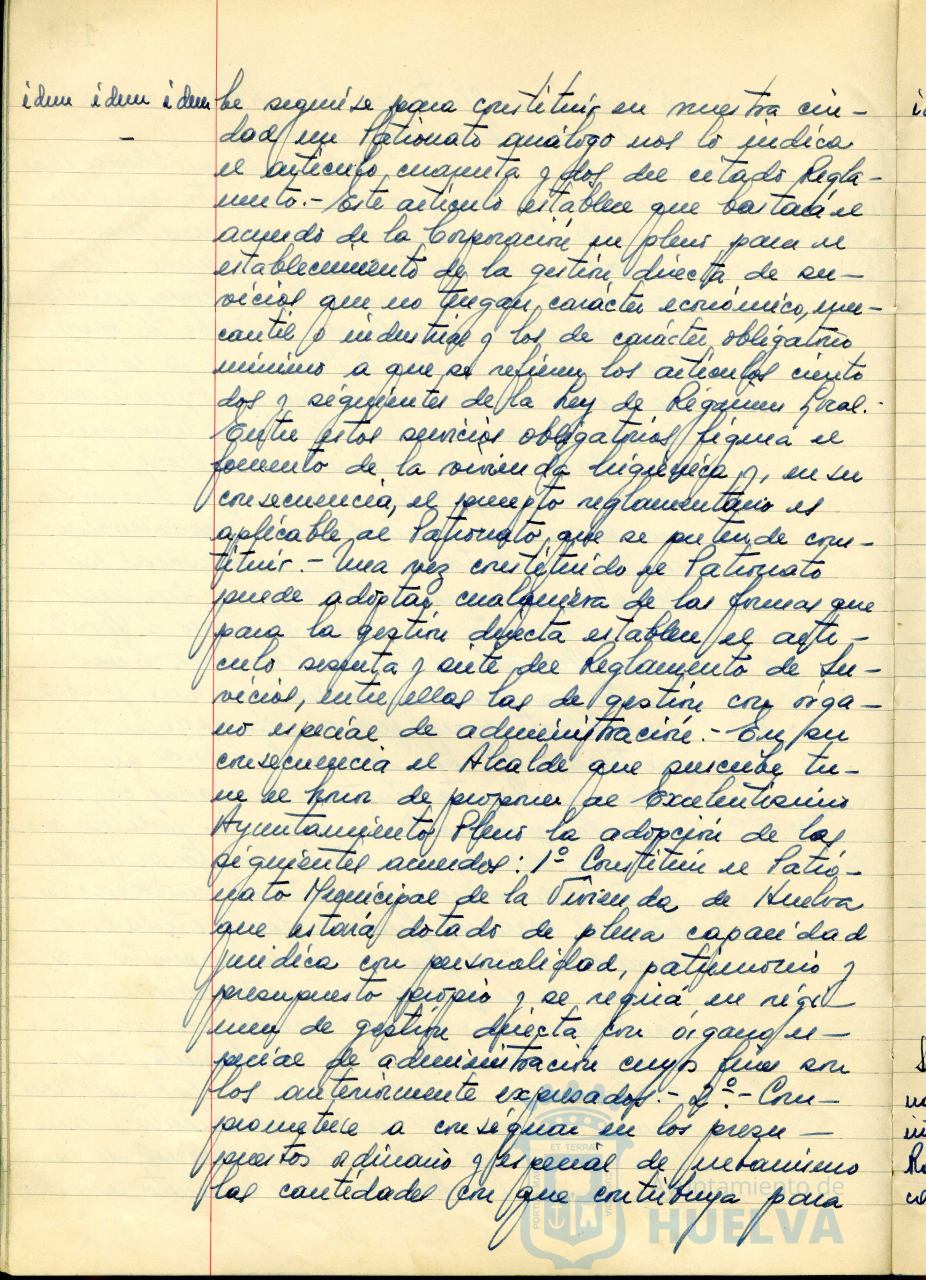 idem idem idem
–
be seguirse para constituir en nuestra ciu–
dad un Patronato análogo nos lo indica
el artículo cuarenta y dos del citado Regla–
mento.– Este artículo establece que bastará el
acuerdo de la Corporación en pleno para el
establecimiento de la gestión directa de ser–
vicios que no tengan carácter económico, mer–
cantil o industrial y los de carácter obligatorio
mínimo a que se refieren los artículos ciento
dos y siguientes de la Ley de Régimen Local.–
Entre estos servicios obligatorios figura el
fomento de la vivienda higiénica y, en su
consecuencia, el precepto reglamentario es
aplicable al Patronato que se pretende cons–
tituir.– Una vez constituido el Patronato
puede adoptar cualquiera de las formas que
para la gestión directa establece el artí–
culo sesenta y siete del Reglamento de Ser–
vicios, entre ellas las de gestión con órga–
no especial de administración.– En su
consecuencia el Alcalde que suscribe tie–
ne el honor de proponer al Excelentísimo
Ayuntamiento Pleno la adopción de los
siguientes acuerdos: 1º Constituir el Patro–
nato Municipal de la Vivienda de Huelva
que estará dotado de plena capacidad
jurídica con personalidad, patrimonio y
presupuesto propio y se regirá en régi–
men de gestión directa con órgano es–
pecial de administración cuyos fines son
los anteriormente expresados.– 2º.– Com–
prometerse a consignar en los presu–
puestos ordinario y especial de urbanismo
las cantidades con que contribuya para
Ayuntamiento de
HUELVA